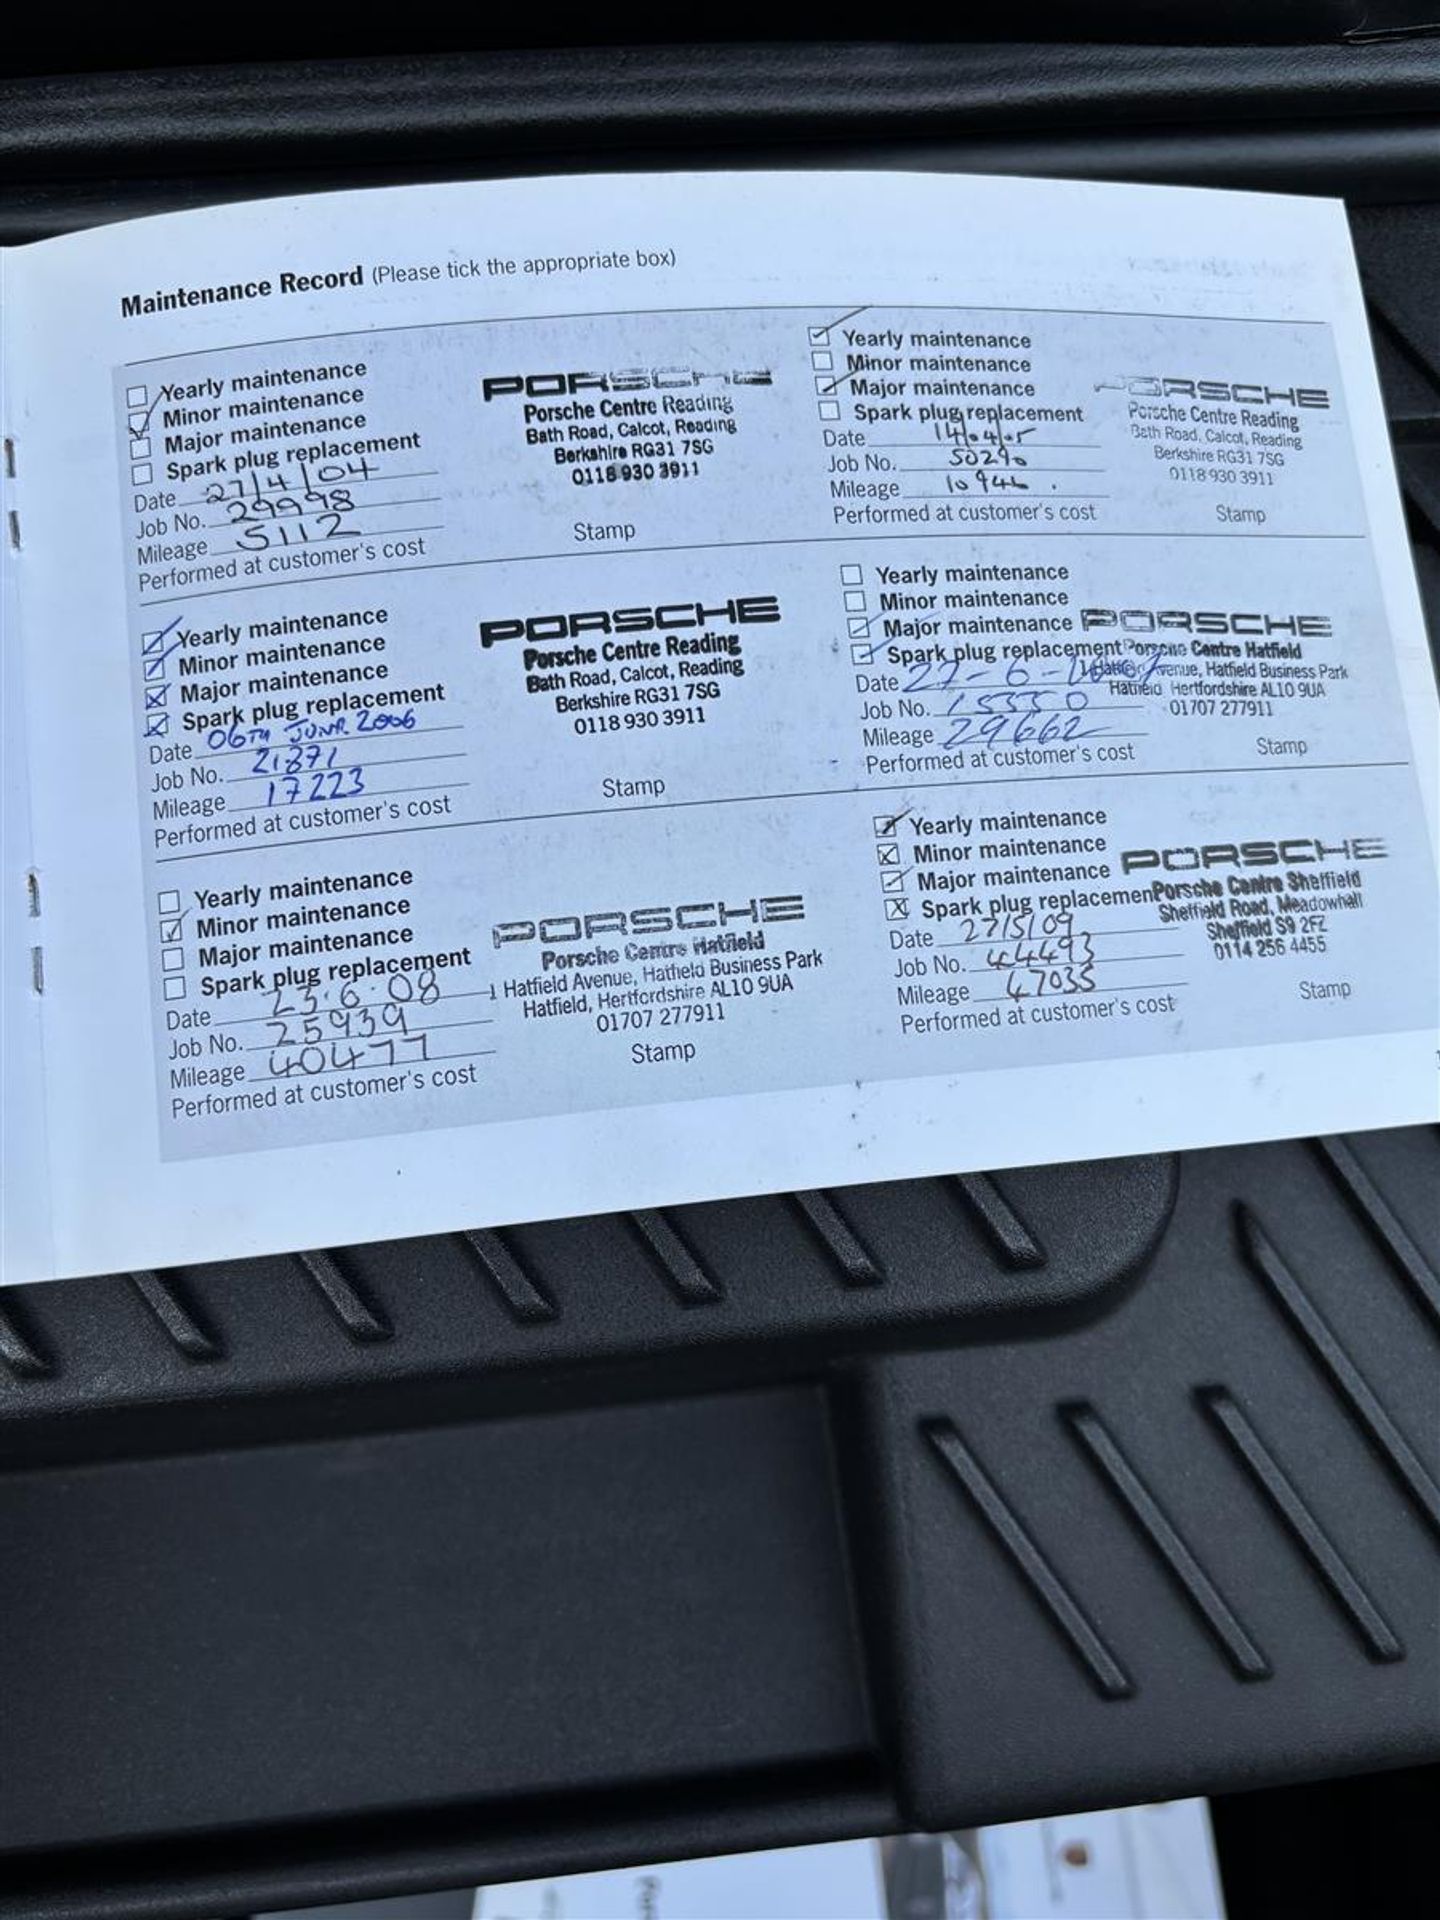 Maintenance Record (Please tick the appropriate box)
Yearly maintenance
Minor maintenance
Major maintenance
Spark plug replacement
Date 27/4/04
Job No. 29998
Mileage 5112
Performed at customer's cost
PORSCHE
Porsche Centre Reading
Bath Road, Calcot, Reading
Berkshire RG31 7SG
0118 930 3911
Stamp
Yearly maintenance
Minor maintenance
Major maintenance
Spark plug replacement
Date 14/04/05
Job No. 50290
Mileage 10946
Performed at customer's cost
PORSCHE
Porsche Centre Reading
Bath Road, Calcot, Reading
Berkshire RG31 7SG
0118 930 3911
Stamp
Yearly maintenance
Minor maintenance
Major maintenance
Spark plug replacement
Date 06TH JUNE 2006
Job No. 21871
Mileage 17223
Performed at customer's cost
PORSCHE
Porsche Centre Reading
Bath Road, Calcot, Reading
Berkshire RG31 7SG
0118 930 3911
Stamp
Yearly maintenance
Minor maintenance
Major maintenance
Spark plug replacement
Date 27-6-
Job No. 15550
Mileage 29662
Performed at customer's cost
PORSCHE
Porsche Centre Hatfield
1 Hatfield Avenue, Hatfield Business Park
Hatfield Hertfordshire AL10 9UA
01707 277911
Stamp
Yearly maintenance
Minor maintenance
Major maintenance
Spark plug replacement
Date 23.6.08
Job No. 25939
Mileage 40477
Performed at customer's cost
PORSCHE
Porsche Centre Hatfield
1 Hatfield Avenue, Hatfield Business Park
Hatfield, Hertfordshire AL10 9UA
01707 277911
Stamp
Yearly maintenance
Minor maintenance
Major maintenance
Spark plug replacement
Date 27/5/09
Job No. 44493
Mileage 47035
Performed at customer's cost
PORSCHE
Porsche Centre Sheffield
Sheffield Road, Meadowhall
Sheffield S9 2FZ
0114 256 4455
Stamp